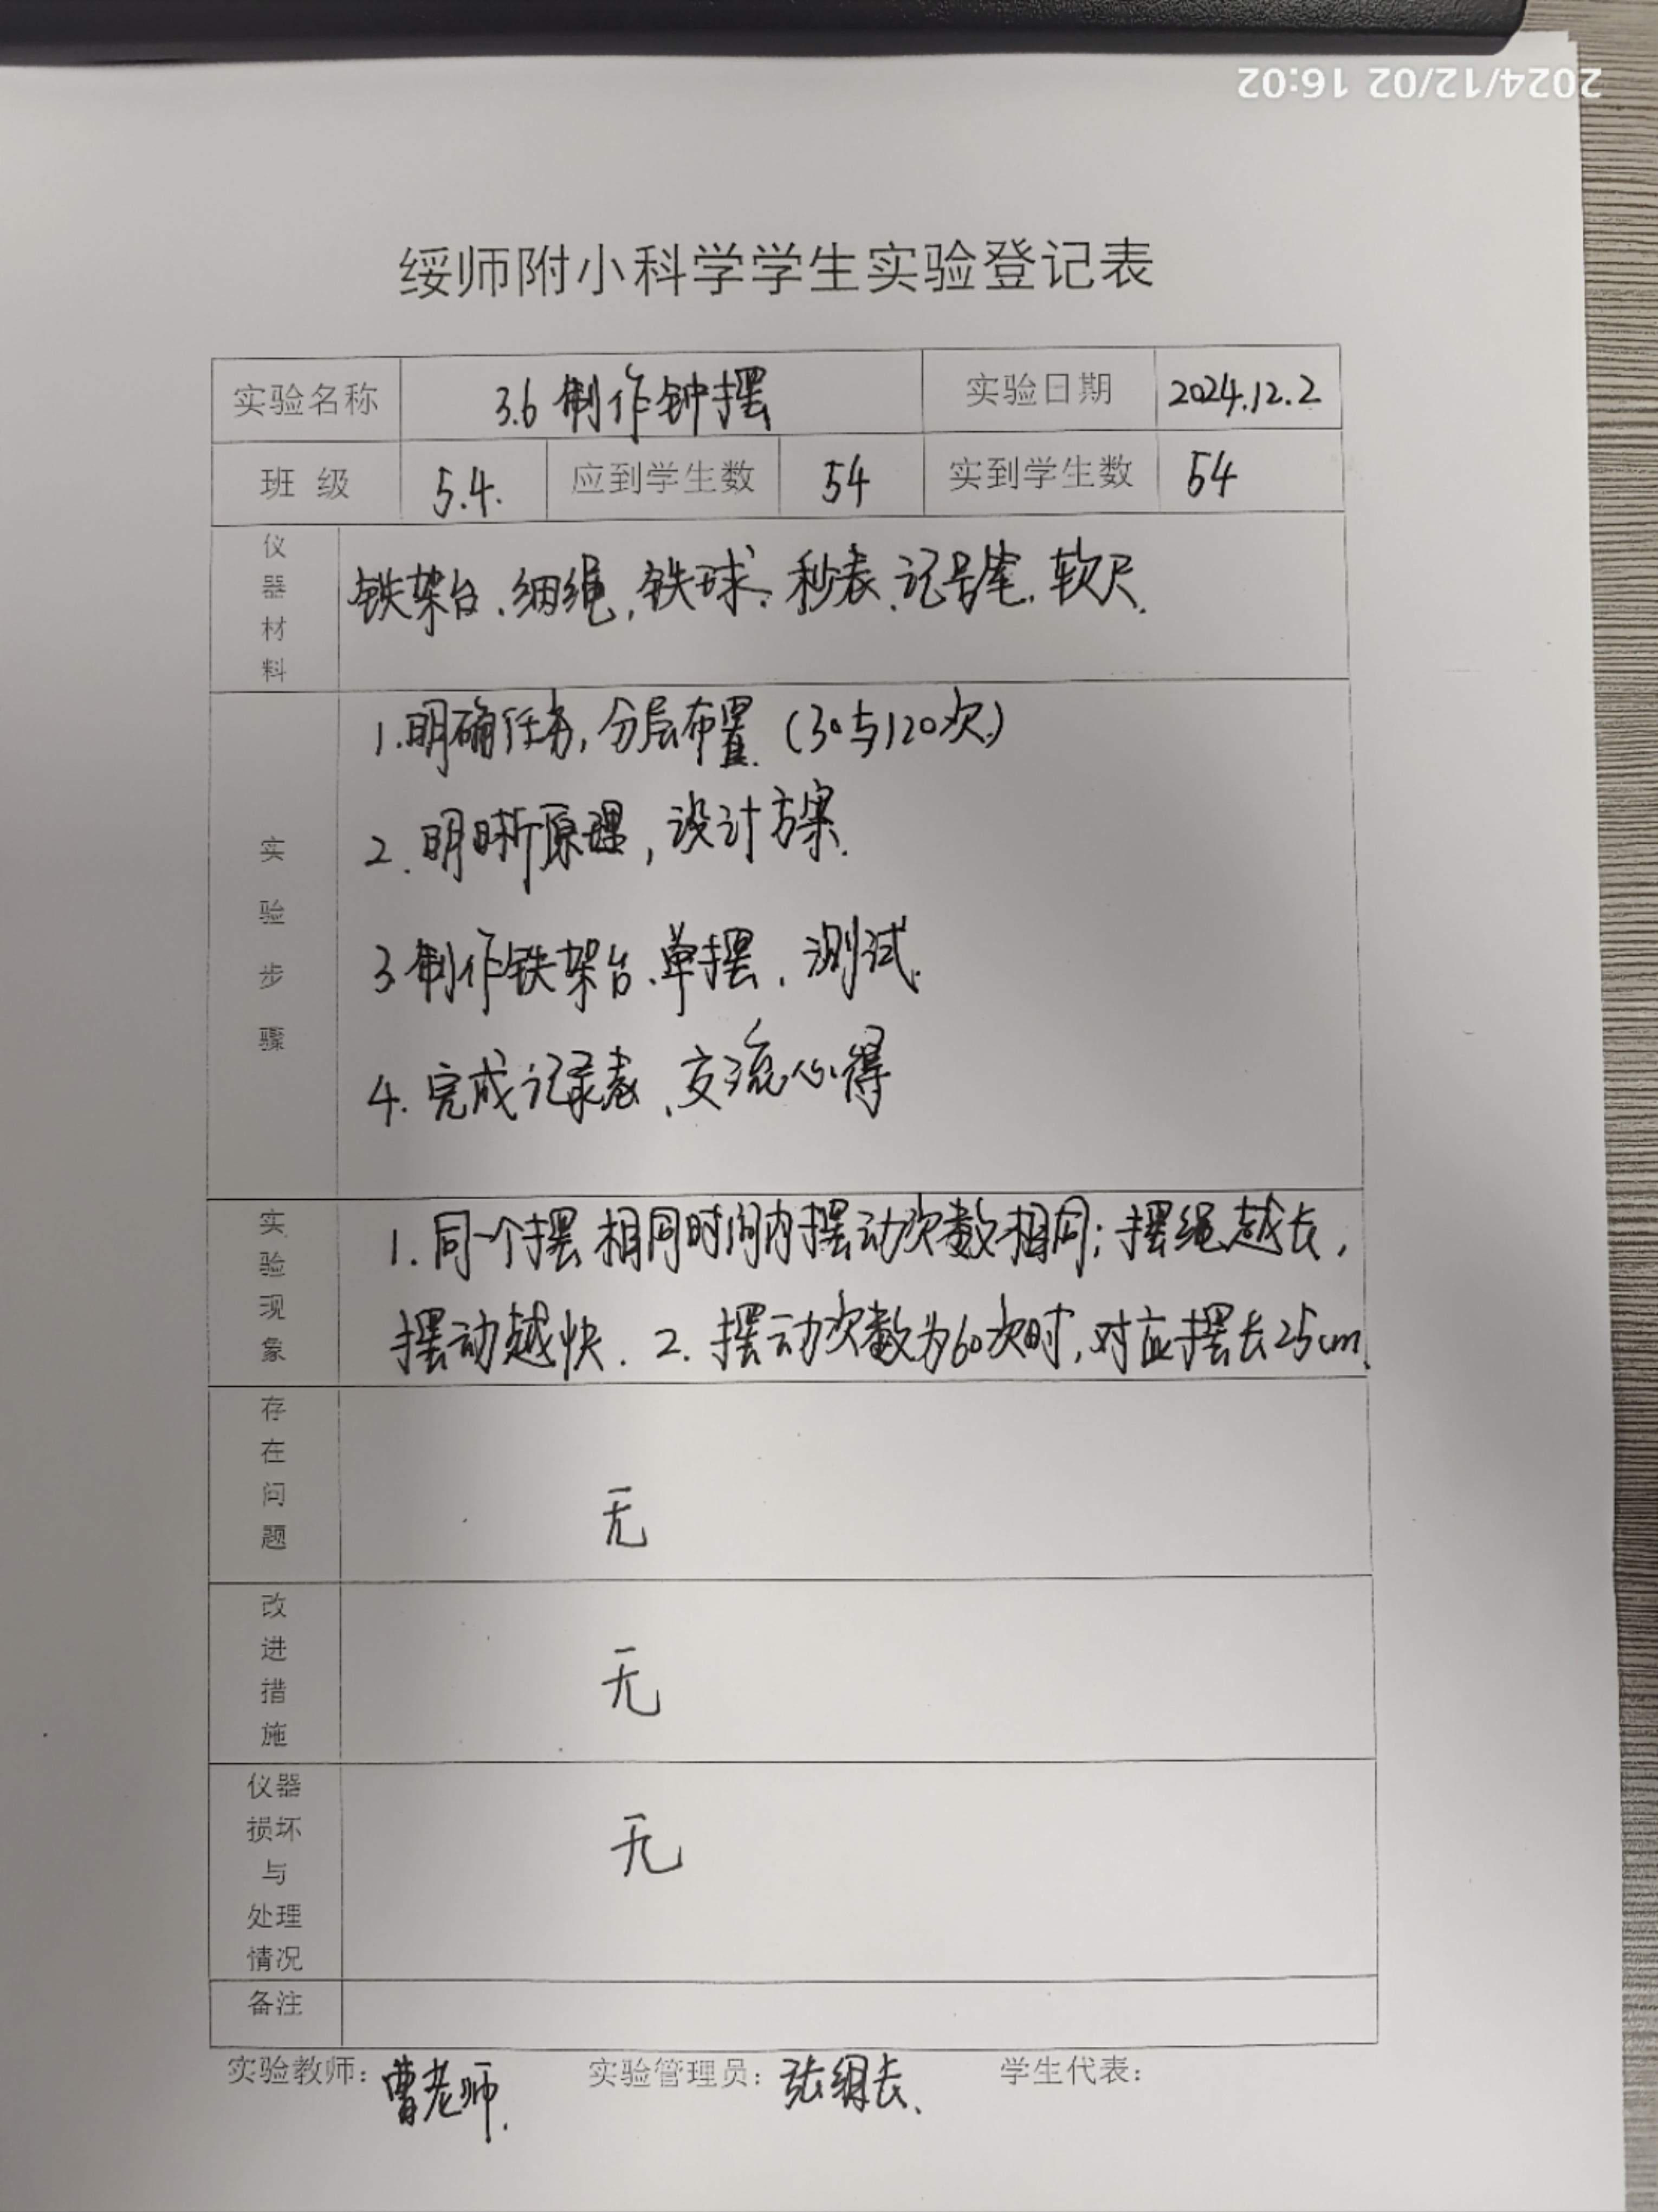 2024/12/02 16:02
绥师附小科学学生实验登记表
实验名称 3.6 制作钟摆 实验日期 2024.12.2
班 级 5.4. 应到学生数 54 实到学生数 54
仪器材料 铁架台、细绳,铁球、秒表、记号笔、软尺、
实验步骤
1.明确任务,分层布置.(30与120次)
2.明晰原理,设计方案.
3制作铁架台、单摆,测试.
4.完成记录表、交流心得
实验现象
1.同一个摆 相同时间内摆动次数相同;摆绳越长,
摆动越快. 2. 摆动次数为60次时,对应摆长25cm.
存在问题 无
改进措施 无
仪器损坏与处理情况 无
备注
实验教师:曹老师. 实验管理员:张组长、 学生代表: